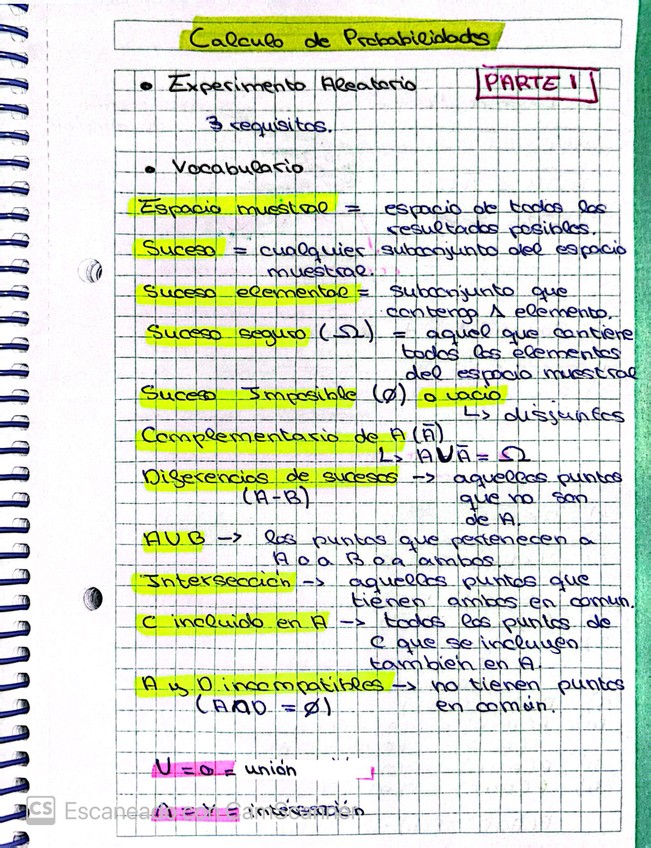 Calculo de Probabilidades
• Experimento Aleatorio PARTE 1
3 requisitos.
• Vocabulario
Espacio muestral = espacio de todos los
resultados posibles.
Suceso = cualquier subconjunto del espacio
muestral.
Suceso elemental = subconjunto que
contenga 1 elemento.
Suceso seguro (Ω) = aquel que contiene
todos los elementos
del espacio muestral
Suceso Imposible (∅) o vacio
↳ disjuntos
Complementario de A (Ā)
↳ A ∪ Ā = Ω
Diferencias de sucesos → aquellos puntos
(A-B) que no son
de A.
A ∪ B → los puntos que pertenecen a
A o a B o a ambos.
Intersección → aquellos puntos que
tienen ambos en comun.
C incluido en A → todos los puntos de
C que se incluyen
también en A.
A y D incompatibles → no tienen puntos
(A∩D = ∅) en común.
U = o = unión
∩ = y = intersección
CS Escaneado con CamScanner